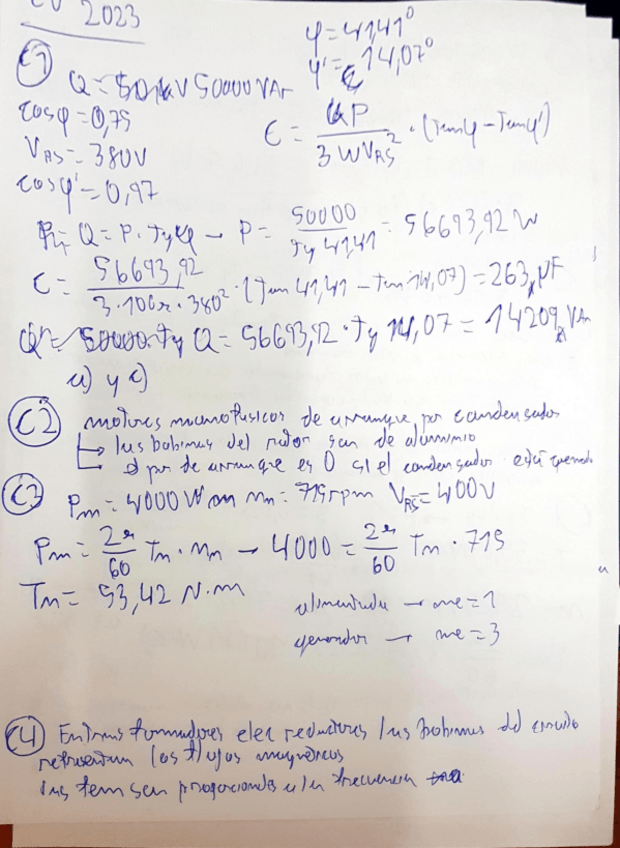 2023
φ = 41,41°
φ' = 14,07°
C1 Q = 50000 VAr
cosφ = 0,75
V_RS = 380V
cosφ' = 0,97
C = P / 3 W V_RS² · (Tanφ - Tanφ')
Q = P · Tgφ → P = 50000 / Tg 41,41 = 56693,92 W
C = 56693,92 / 3 · 100π · 380² · (Tan 41,41 - Tan 14,07) = 263 μF
Q = 56693,92 · Tg 14,07 = 14209 VAr
a) y c)
C2 motores monofasicos de arranque por condensador
las bobinas del rotor son de aluminio
el par de arranque es 0 si el condensador está quemado
C3 Pm = 4000 W nn = 715 rpm V_RS = 400V
Pm = 2π/60 Tn · nn → 4000 = 2π/60 Tn · 715
Tn = 53,42 N·m
alimentada → me = 1
generador → me = 3
C4 En transformadores reductores las bobinas del circuito
representan los flujos magneticos
las fem son proporcionales a la frecuencia